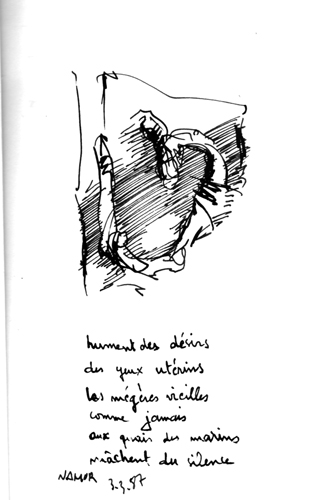 hument des désirs
des yeux utérins
les mégères vieilles
comme jamais
aux quais des marins
mâchent du silence
NAMUR 3.3.87